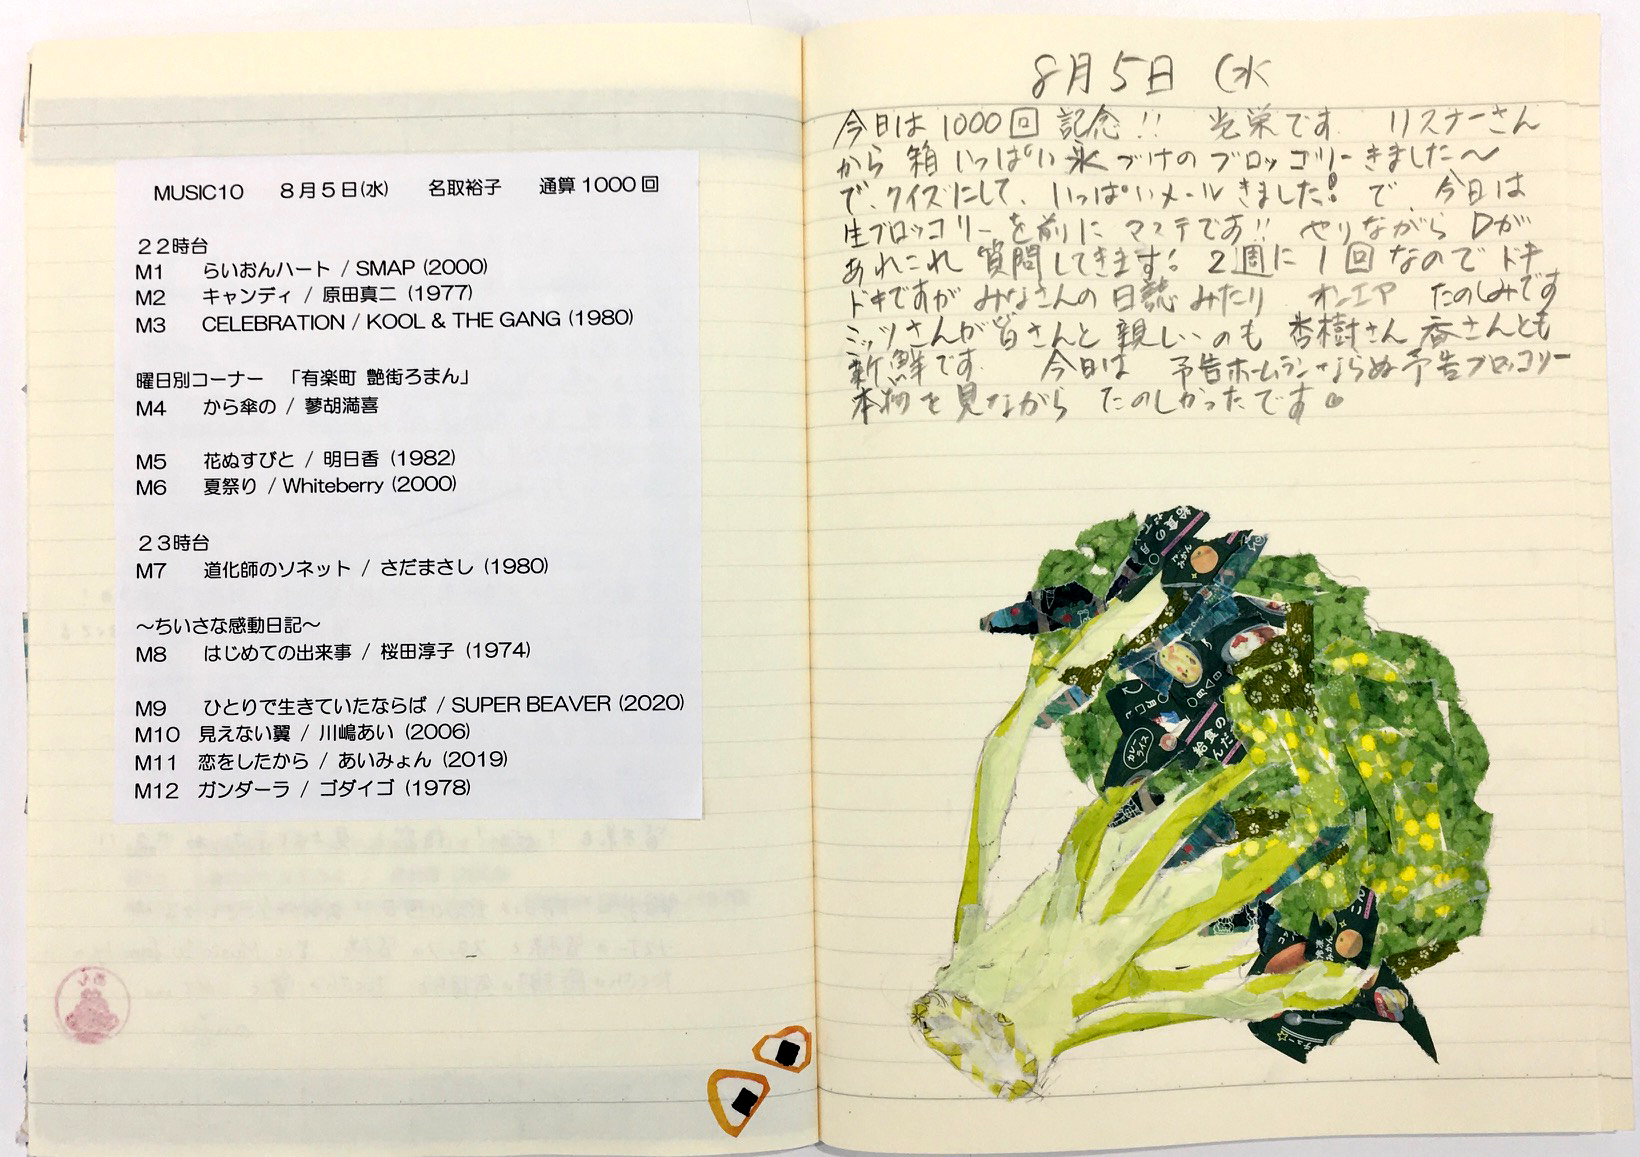 MUSIC10 8月5日(水) 名取裕子 通算1000回
22時台
M1 らいおんハート / SMAP (2000)
M2 キャンディ / 原田真二 (1977)
M3 CELEBRATION / KOOL & THE GANG (1980)
曜日別コーナー 「有楽町 艶街ろまん」
M4 から傘の / 蓼胡満喜
M5 花ぬすびと / 明日香 (1982)
M6 夏祭り / Whiteberry (2000)
23時台
M7 道化師のソネット / さだまさし (1980)
～ちいさな感動日記～
M8 はじめての出来事 / 桜田淳子 (1974)
M9 ひとりで生きていたならば / SUPER BEAVER (2020)
M10 見えない翼 / 川嶋あい (2006)
M11 恋をしたから / あいみょん (2019)
M12 ガンダーラ / ゴダイゴ (1978)
8月5日 (水
今日は1000回記念!! 光栄です リスナーさん
から 箱いっぱい氷づけのブロッコリーきました〜
で、クイズにして、いっぱいメールきました! で、今日は
生ブロッコリーを前に マッテです!! やりながら Dが
あれこれ 質問してきます! 2週に1回なので ドキ
ドキですが みなさんの日誌みたり オンエア たのしみです
ミッツさんが皆さんと親しいのも 杏樹さん 香さんとも
新鮮です. 今日は 予告ホームランならぬ予告ブロッコリー
本物を見ながら たのしかったです。
給食の
みかん
カレーライス
給食の
んだ
冷凍みかん